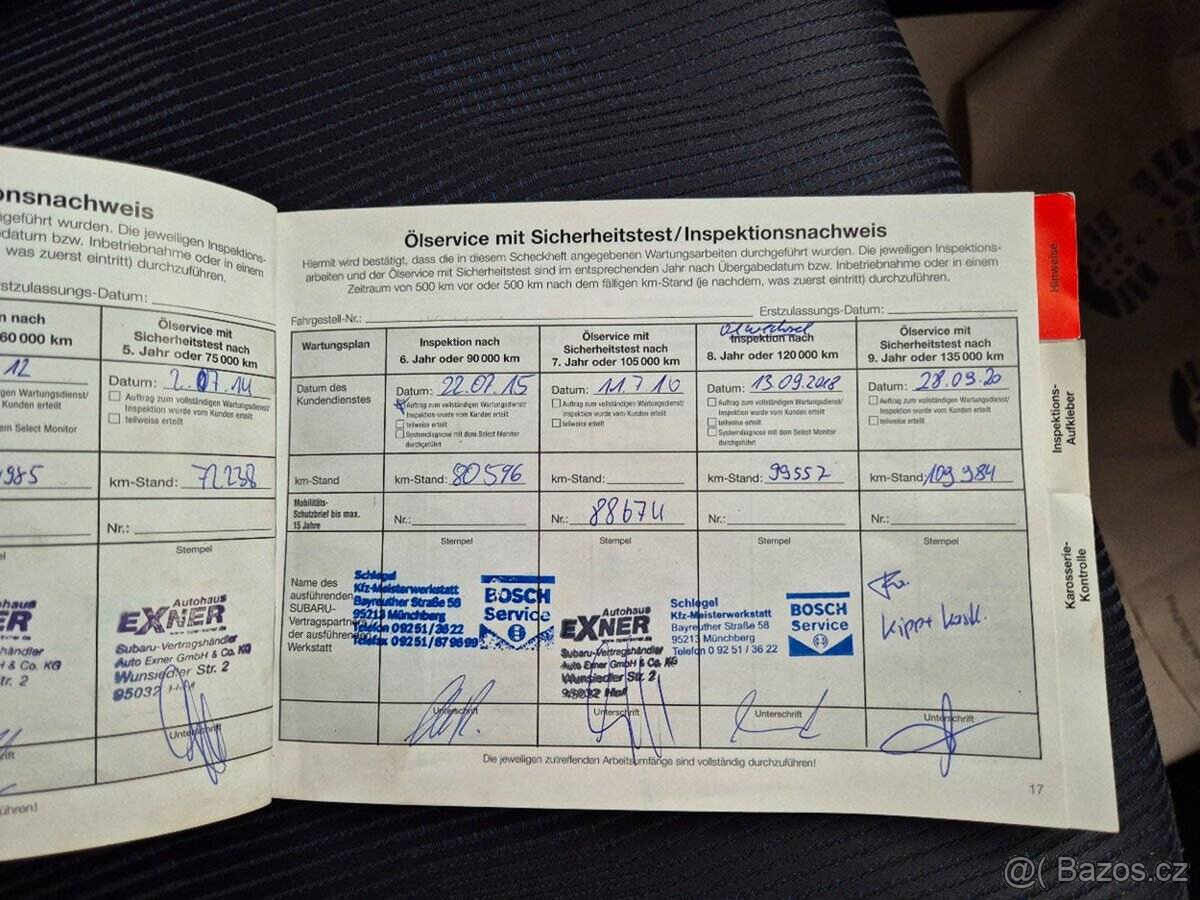 onsnachweis
geführt wurden. Die jeweiligen Inspektions-
datum bzw. Inbetriebnahme oder in einem
was zuerst eintritt) durchzuführen.
Erstzulassungs-Datum:
n nach
60 000 km
Ölservice mit
Sicherheitstest nach
5. Jahr oder 75 000 km
12
Datum: 2.07.14
gen Wartungsdienst/
Kunden erteilt
Auftrag zum vollständigen Wartungsdienst/
Inspektion wurde vom Kunden erteilt
teilweise erteilt
em Select Monitor
985
km-Stand: 72238
Nr.:
Stempel
Autohaus
EXNER
Subaru-Vertragshändler
Auto Exner GmbH & Co. KG
Wunsiedler Str. 2
95032 Hof
händler
H & Co. KG
tr. 2
Unterschrift
führen!
Ölservice mit Sicherheitstest/Inspektionsnachweis
Hiermit wird bestätigt, dass die in diesem Scheckheft angegebenen Wartungsarbeiten durchgeführt wurden. Die jeweiligen Inspektions-
arbeiten und der Ölservice mit Sicherheitstest sind im entsprechenden Jahr nach Übergabedatum bzw. Inbetriebnahme oder in einem
Zeitraum von 500 km vor oder 500 km nach dem fälligen km-Stand (je nachdem, was zuerst eintritt) durchzuführen.
Fahrgestell-Nr.:
Erstzulassungs-Datum:
Wartungsplan
Inspektion nach
6. Jahr oder 90 000 km
Ölservice mit
Sicherheitstest nach
7. Jahr oder 105 000 km
Ölwechsel
Inspektion nach
8. Jahr oder 120 000 km
Ölservice mit
Sicherheitstest nach
9. Jahr oder 135 000 km
Datum des
Kundendienstes
Datum: 22.07.15
Auftrag zum vollständigen Wartungsdienst/
Inspektion wurde vom Kunden erteilt
teilweise erteilt
Systemdiagnose mit dem Select Monitor
durchgeführt
Datum: 11.7.16
Auftrag zum vollständigen Wartungsdienst/
Inspektion wurde vom Kunden erteilt
teilweise erteilt
Datum: 13.09.2018
Auftrag zum vollständigen Wartungsdienst/
Inspektion wurde vom Kunden erteilt
teilweise erteilt
Systemdiagnose mit dem Select Monitor
durchgeführt
Datum: 28.09.20
Auftrag zum vollständigen Wartungsdienst/
Inspektion wurde vom Kunden erteilt
teilweise erteilt
km-Stand
km-Stand: 80596
km-Stand:
km-Stand: 99557
km-Stand: 109984
Mobilitäts-
Schutzbrief bis max.
15 Jahre
Nr.:
Nr.: 88674
Nr.:
Nr.:
Stempel
Stempel
Stempel
Stempel
Name des
ausführenden
SUBARU-
Vertragspartners
der ausführenden
Werkstatt
Schlegel
Kfz-Meisterwerkstatt
Bayreuther Straße 58
95213 Münchberg
Telefon 0 92 51 / 36 22
Telefax 0 92 51 / 67 96 99
BOSCH
Service
Autohaus
EXNER
Subaru-Vertragshändler
Auto Exner GmbH & Co. KG
Wunsiedler Str. 2
95032 Hof
Schlegel
Kfz-Meisterwerkstatt
Bayreuther Straße 58
95213 Münchberg
Telefon 0 92 51 / 36 22
BOSCH
Service
Fa.
Unterschrift
Unterschrift
Unterschrift
Unterschrift
Die jeweiligen zutreffenden Arbeitsumfänge sind vollständig durchzuführen!
17
Hinweise
Inspektions-
Aufkleber
Karosserie-
Kontrolle
@( Bazos.cz